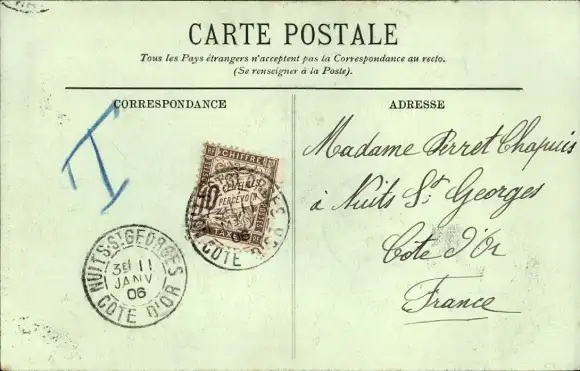 CARTE POSTALE
Tous les Pays étrangers n'acceptent pas la Correspondance au recto.
(Se renseigner à la Poste).
CORRESPONDANCE
ADRESSE
T
CHIFFRE
10
A PERCEVOIR
TAXE
CÔTE D'OR
NUITS-St-GEORGES
3E 11
JANV
06
CÔTE D'OR
Madame Perret Chapuis
à Nuits St. Georges
Côte d'Or
France